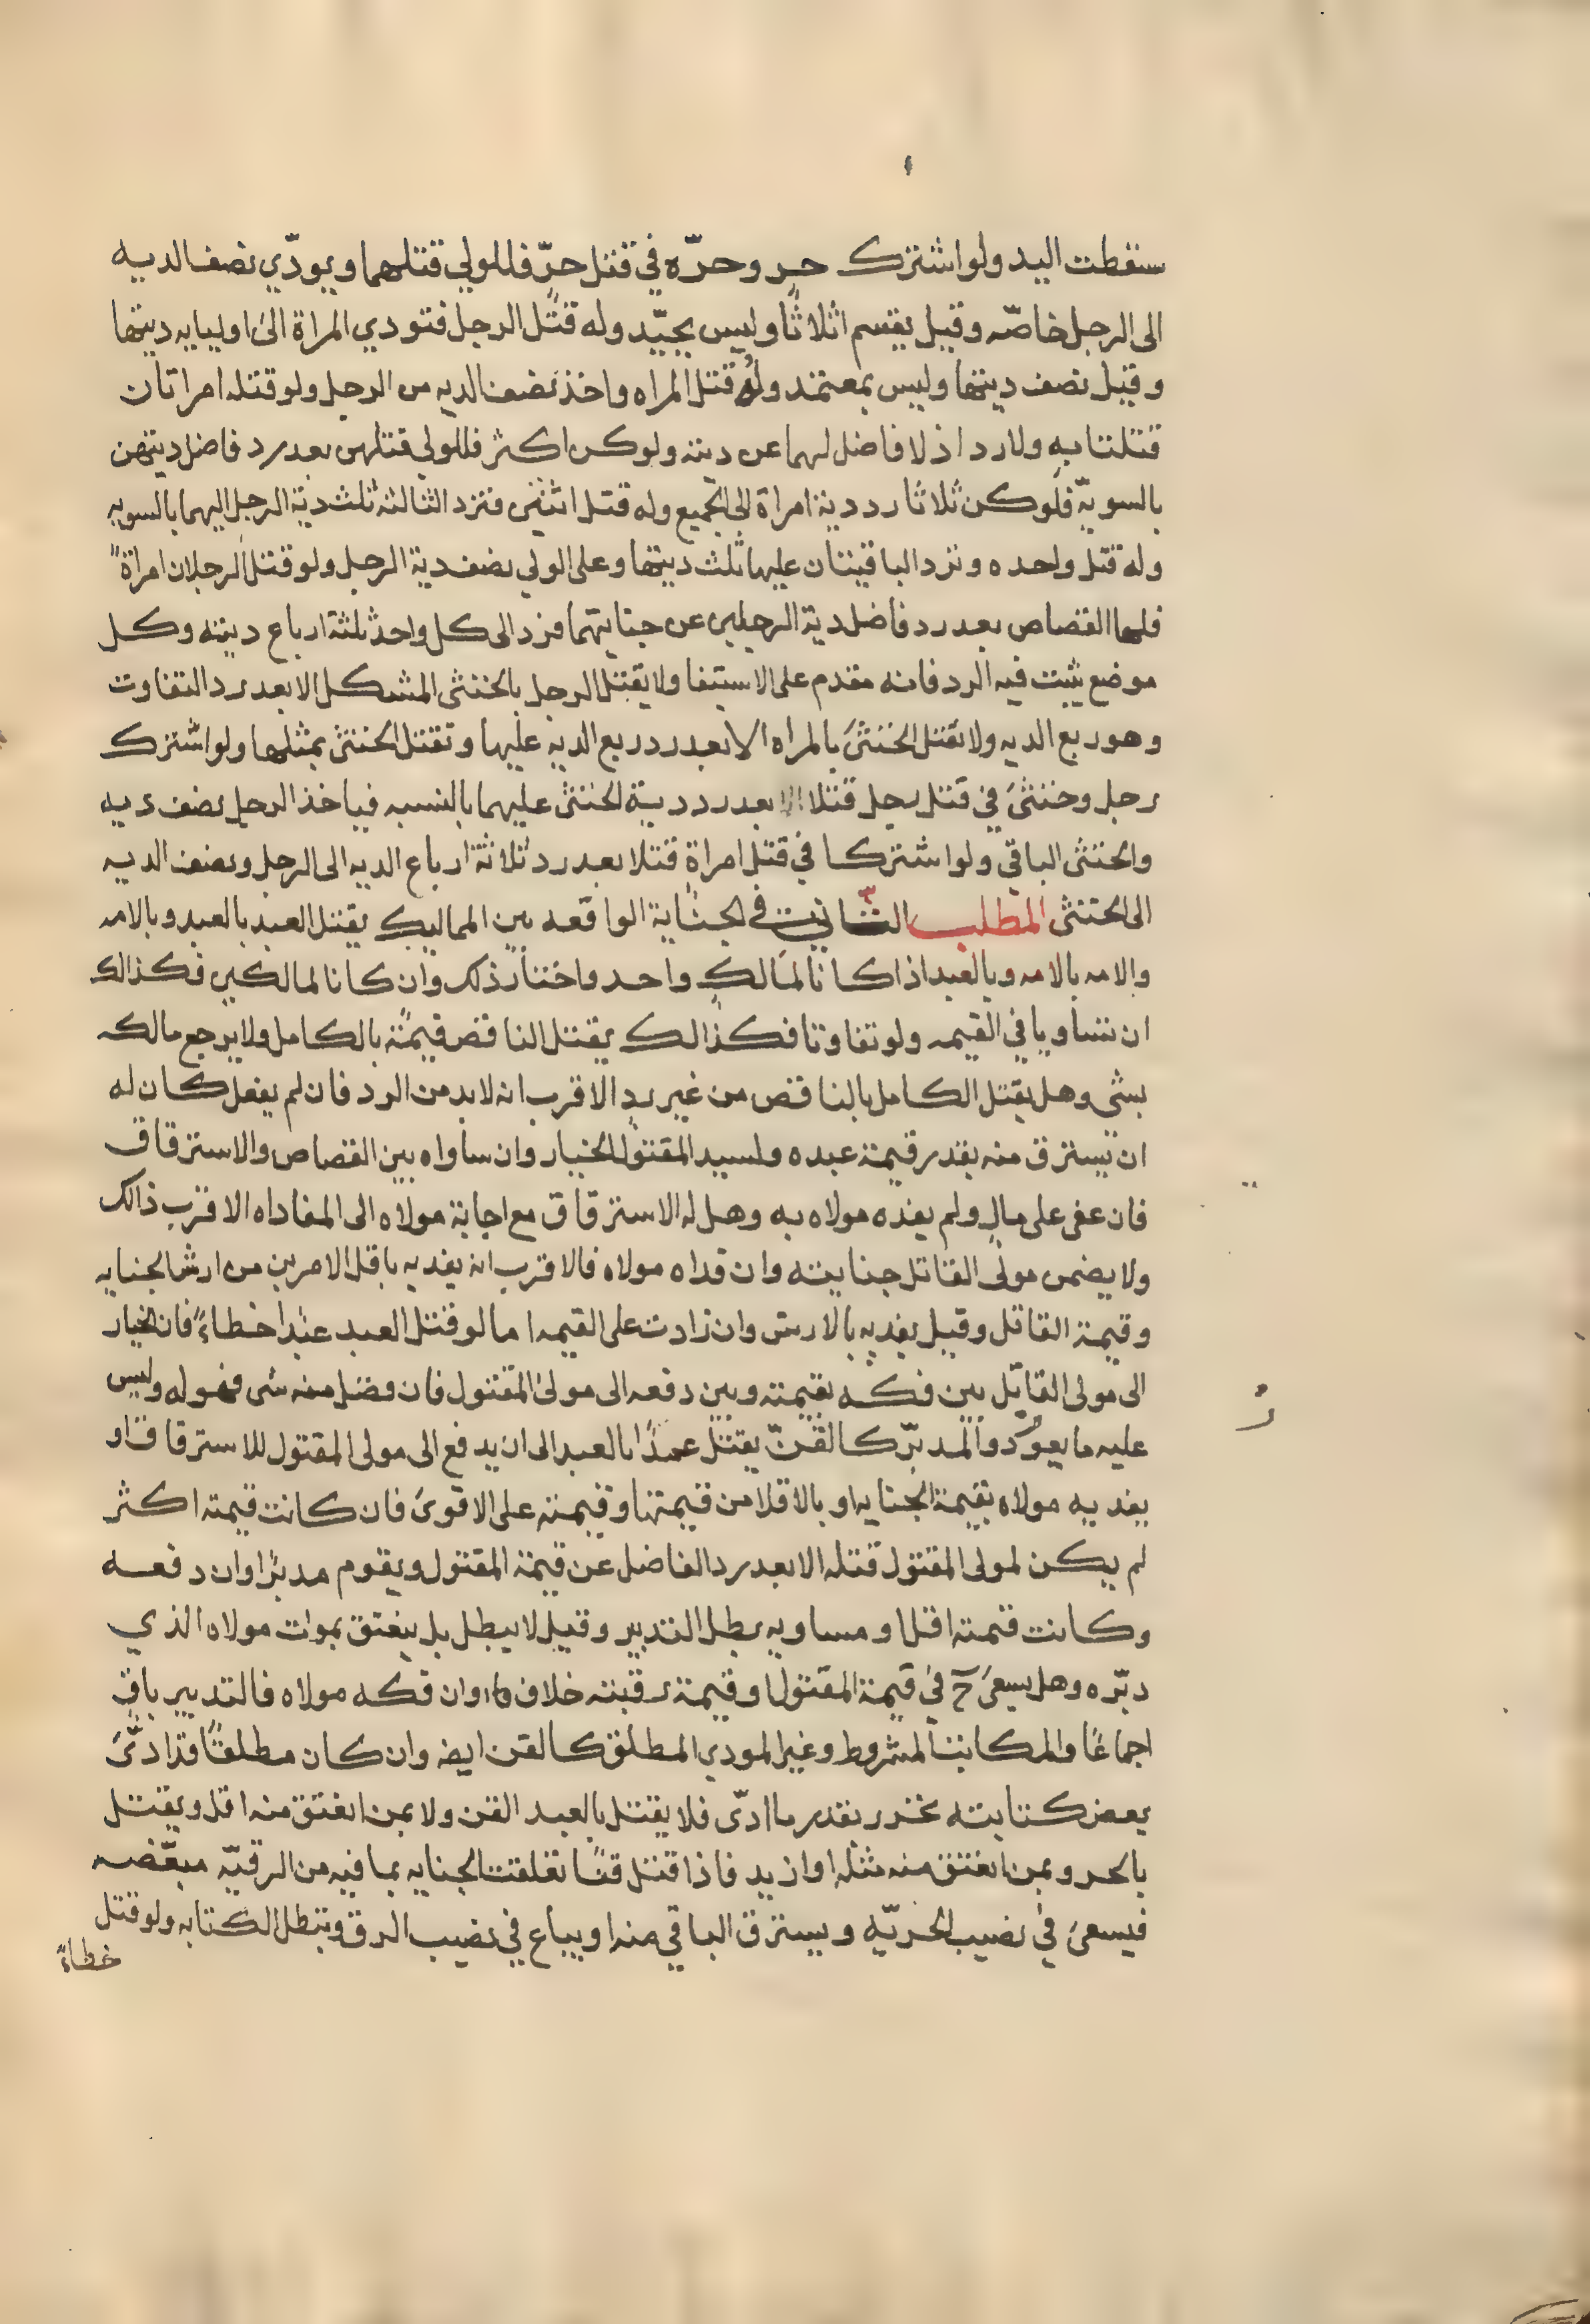 سقطت اليد ولو اشترك حر وحرّه في قتل حرّ فللولي قتلهما ويودّي نصف الديه
الى الرجل خاصّه وقيل يقسم اثلاثًا وليس بجيّد وله قتل الرجل فتودي المراة الى اوليايه ديتها
وقيل نصف ديتها وليس بمعتمد وله قتل المراه واخذ نصف الديه من الرجل ولو قتله امراتان
قتلتا به ولا رد اذ لا فاضل لهما عن ديته ولو كن اكثر فللولي قتلهن بعد رد فاضل ديتهن
بالسويّه فلو كن ثلاثا رد دية امراة الى الجميع وله قتل اثنتين فترد الثالثه ثلث دية الرجل اليهما بالسويه
وله قتل واحده وترد الباقيتان عليها ثلث ديتها وعلى الولي نصف دية الرجل ولو قتل الرجلان امراةً
فلها القصاص بعد رد فاضل دية الرجلين عن جنايتهما فرد الى كل واحد ثلثة ارباع ديته وكل
موضع يثبت فيه الرد فانه مقدم على الاستيفا ولا يقتل الرجل بالخنثى المشكل الا بعد رد التفاوت
وهو ربع الديه ولا تقتل الخنثى بالمراه الا بعد رد ربع الديه عليها وتقتل الخنثى بمثلها ولو اشترك
رجل وخنثى في قتل رجل قتلا بعد رد دية الخنثى عليهما بالنسبه فياخذ الرجل نصف ديه
والخنثى الباقي ولو اشتركا في قتل امراة قتلا بعد رد ثلاثة ارباع الديه الى الرجل ونصف الديه
الى الخنثى المطلب الثاني في الجناية الواقعه بين المماليك يقتل العبد بالعبد وبالامه
والامه بالامه وبالعبد اذا كانا لمالك واحد واختار ذلك وان كانا لمالكين فكذالك
ان تساويا في القيمه ولو تفاوتا فكذالك يقتل الناقص قيمته بالكامل ولا يرجع مالكه
بشي وهل يقتل الكامل بالناقص من غير رد الاقرب انه لابد من الرد فان لم يفعل كان له
ان يسترق منه بقدر قيمة عبده ولسيد المقتول الخيار وان ساواه بين القصاص والاسترقاق
فان عفى على مال ولم يفده مولاه به وهل له الاسترقاق مع اجابة مولاه الى المفاداه الاقرب ذالك
ولا يضمن مولى القاتل جنايته وان فداه مولاه فالاقرب انه يفديه باقل الامرين من ارش الجنايه
وقيمة القاتل وقيل يفديه بالارش وان زادت على القيمه اما لو قتل العبد عبدا خطاءً فان الخيار
الى مولى القاتل بين فكه بقيمته وبين دفعه الى مولى المقتول فان فضل منه شي فهو له وليس
عليه ما يعوز والمدبّر كالقنّ يقتل عمدًا بالعبد الى ان يدفع الى مولى المقتول للاسترقاق او
يفديه مولاه بقيمة الجنايه او بالاقل من قيمتها وقيمته على الاقوى فان كانت قيمته اكثر
لم يكن لمولى المقتول قتله الا بعد رد الفاضل عن قيمة المقتول ويقوم مدبرًا وان دفعه
وكانت قيمته اقل او مساويه بطل التدبير وقيل لا يبطل بل ينعتق بموت مولاه الذي
دبّره وهل يسعى ح في قيمة المقتول او قيمة رقبته خلاف وان فكه مولاه فالتدبير باق
اجماعًا والمكاتب المشروط وغير المودي المطلق كالقن ايضه وان كان مطلقًا قد ادّى
بعض كتابته تحرر بقدر ما ادّى فلا يقتل بالعبد القن ولا بمن انعتق منه اقل ويقتل
بالحر وبمن انعتق منه مثله او ازيد فاذا قتل قنًا تعلقت الجنايه بما فيه من الرقيّه مبعّضه
فيسعى في نصيب الحريّه ويسترق الباقي منه او يباع في نصيب الرق وتبطل الكتابه ولو قتل
خطاءً